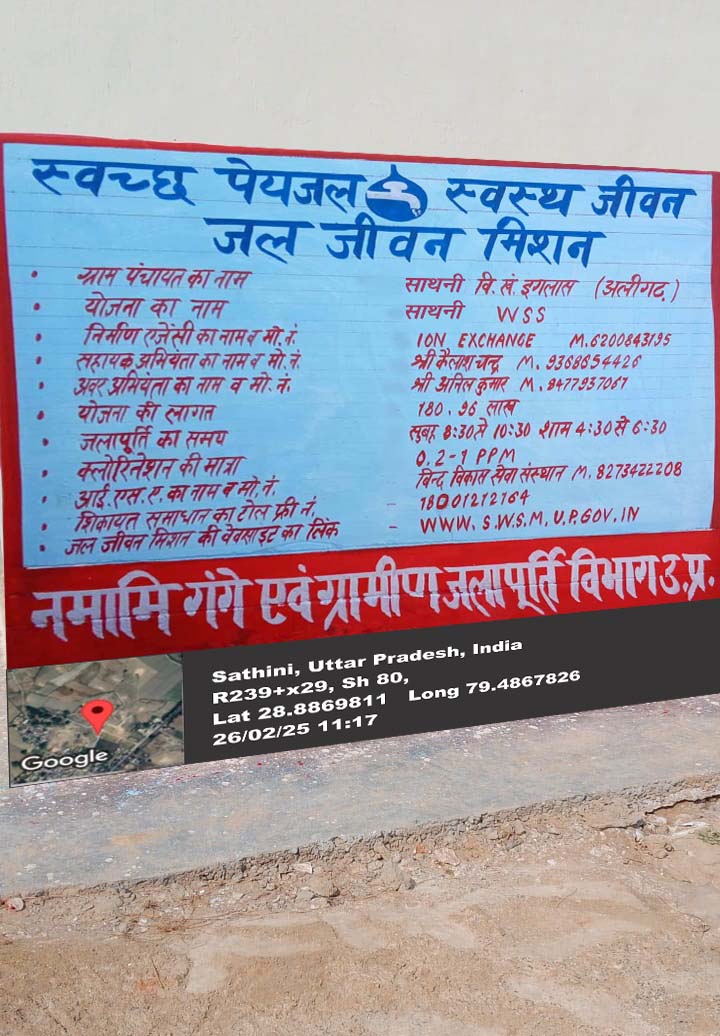 स्वच्छ पेयजल स्वस्थ जीवन
जल जीवन मिशन
• ग्राम पंचायत का नाम साथनी वि. खं. इगलास (अलीगढ़)
• योजना का नाम साथनी WSS
• निर्माण एजेंसी का नाम व मो. नं. ION EXCHANGE M.6200843195
• सहायक अभियंता का नाम व मो. नं. श्री कैलाश चन्द्र M. 9368654426
• अवर अभियंता का नाम व मो. नं. श्री अनिल कुमार M. 8477937067
• योजना की लागत 180.96 लाख
• जलापूर्ति का समय सुबह 8:30 से 10:30 शाम 4:30 से 6:30
• क्लोरिनेशन की मात्रा 0.2-1 PPM
• आई. एस. ए. का नाम व मो. नं. विन्द विकास सेवा संस्थान M. 8273422208
• शिकायत समाधान का टोल फ्री नं. - 18001212164
• जल जीवन मिशन की वेबसाइट का लिंक - WWW.SWSM.UP.GOV.IN
नमामि गंगे एवं ग्रामीण जलापूर्ति विभाग उ.प्र.
Sathini, Uttar Pradesh, India
R239+x29, Sh 80,
Lat 28.8869811 Long 79.4867826
26/02/25 11:17
Google